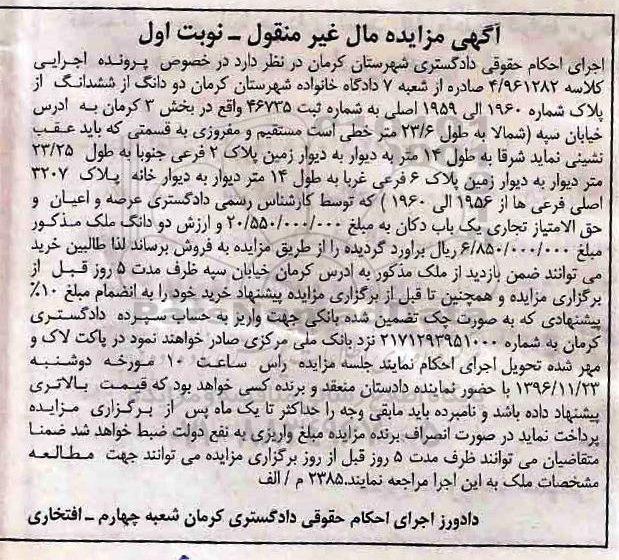 آگهی مزایده مال غیر منقول ـ نوبت اول
اجرای احکام حقوقی دادگستری شهرستان کرمان در نظر دارد در خصوص پرونده اجرایی
کلاسه ۴/۹۶۱۲۸۲ صادره از شعبه ۷ دادگاه خانواده شهرستان کرمان دو دانگ از ششدانگ از
پلاک شماره ۱۹۶۰ الی ۱۹۵۹ اصلی به شماره ثبت ۴۶۷۳۵ واقع در بخش ۳ کرمان به ادرس
خیابان سپه (شمالا به طول ۲۳/۶ متر خطی است مستقیم و مفروزی به قسمتی که باید عقب
نشینی نماید شرقا به طول ۱۴ متر به دیوار به دیوار زمین پلاک ۲ فرعی جنوبا به طول ۲۳/۲۵
متر دیوار به دیوار زمین پلاک ۶ فرعی غربا به طول ۱۴ متر دیوار به دیوار خانه پلاک ۳۲۰۷
اصلی فرعی ها از ۱۹۵۶ الی ۱۹۶۰ ) که توسط کارشناس رسمی دادگستری عرصه و اعیان و
حق الامتیاز تجاری یک باب دکان به مبلغ ۲۰/۵۵۰/۰۰۰/۰۰۰ و ارزش دو دانگ ملک مذکور
مبلغ ۶/۸۵۰/۰۰۰/۰۰۰ ریال براورد گردیده را از طریق مزایده به فروش برساند لذا طالبین خرید
می توانند ضمن بازدید از ملک مذکور به ادرس کرمان خیابان سپه ظرف مدت ۵ روز قبل از
برگزاری مزایده و همچنین تا قبل از برگزاری مزایده پیشنهاد خرید خود را به انضمام مبلغ ۱۰٪
پیشنهادی که به صورت چک تضمین شده بانکی جهت واریز به حساب سپرده دادگستری
کرمان به شماره ۲۱۷۱۲۹۳۹۵۱۰۰۰ نزد بانک ملی مرکزی صادر خواهند نمود در پاکت لاک و
مهر شده تحویل اجرای احکام نمایند جلسه مزایده راس ساعت ۱۰ مورخه دوشنبه
۱۳۹۶/۱۱/۲۳ با حضور نماینده دادستان منعقد و برنده کسی خواهد بود که قیمت بالاتری
پیشنهاد داده باشد و نامبرده باید مابقی وجه را حداکثر تا یک ماه پس از برگزاری مزایده
پرداخت نماید در صورت انصراف برنده مزایده مبلغ واریزی به نفع دولت ضبط خواهد شد ضمنا
متقاضیان می توانند ظرف مدت ۵ روز قبل از روز برگزاری مزایده می توانند جهت مطالعه
مشخصات ملک به این اجرا مراجعه نمایند.۲۳۸۵ م / الف
دادورز اجرای احکام حقوقی دادگستری کرمان شعبه چهارم ـ افتخاری